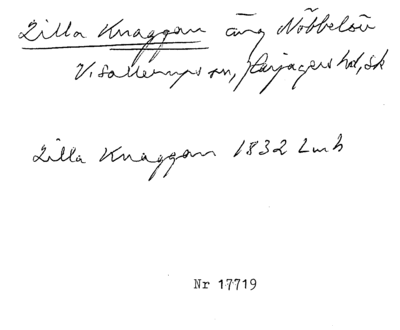 Lilla Knaggan äng Nöbbelöv
V. Sallerups sn, Harjagers hd, Sk
Lilla Knaggan 1832 Lmh
Nr 17719